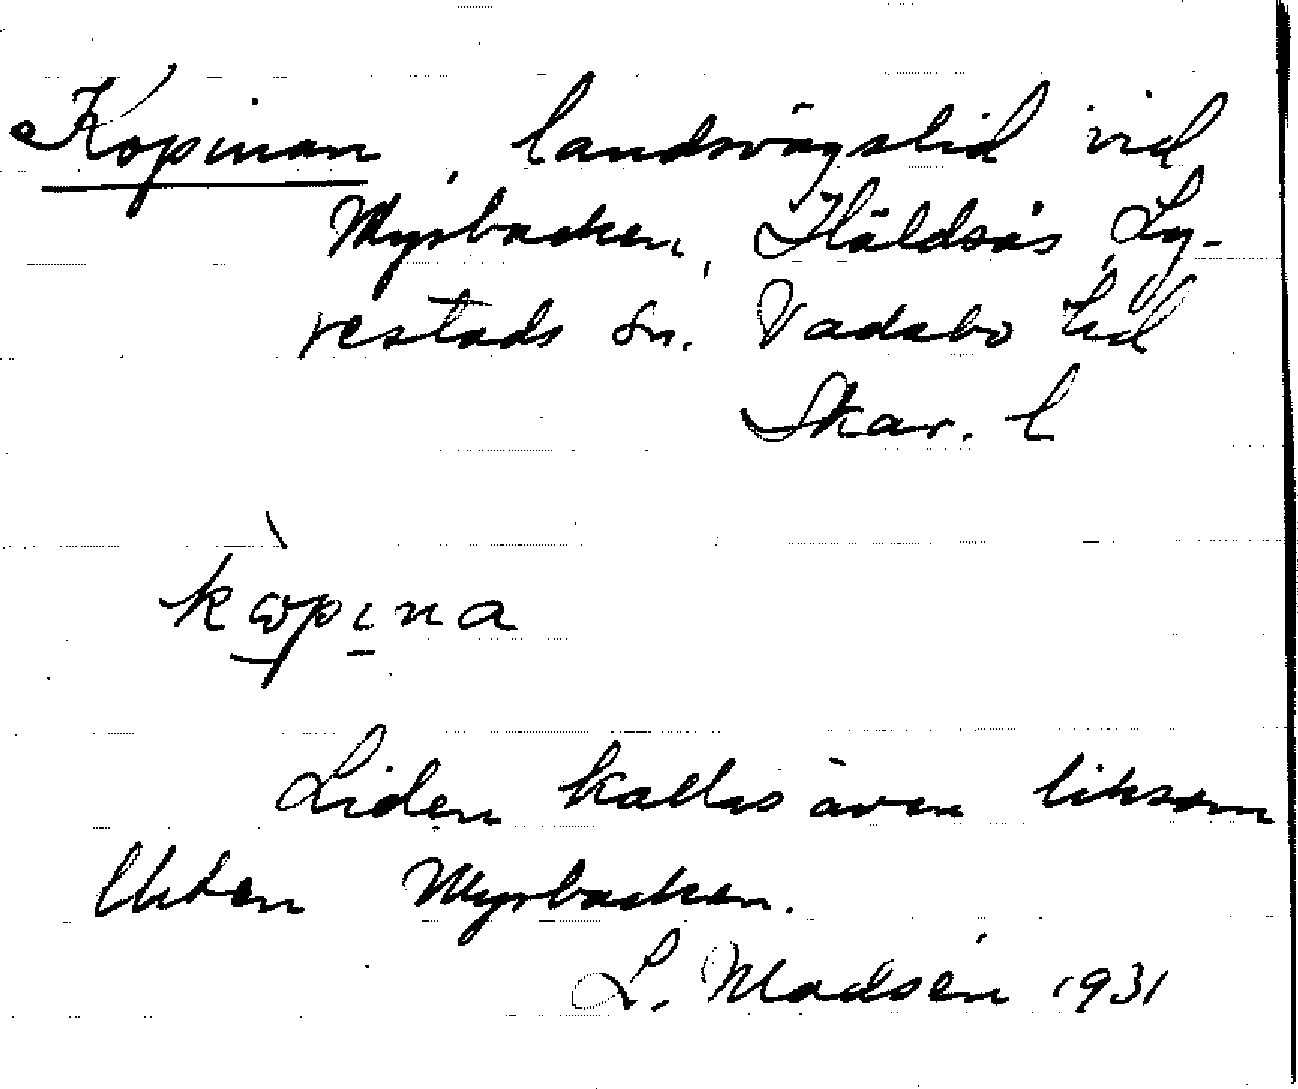 Kopinan, landsvägslid vid
Myrbacken, Häldsås, Ly-
restads sn. Vadsbo hd
Skar. l
kɷpına
Liden kallas även liksom
Myrbacken.
L. Madsén 1931